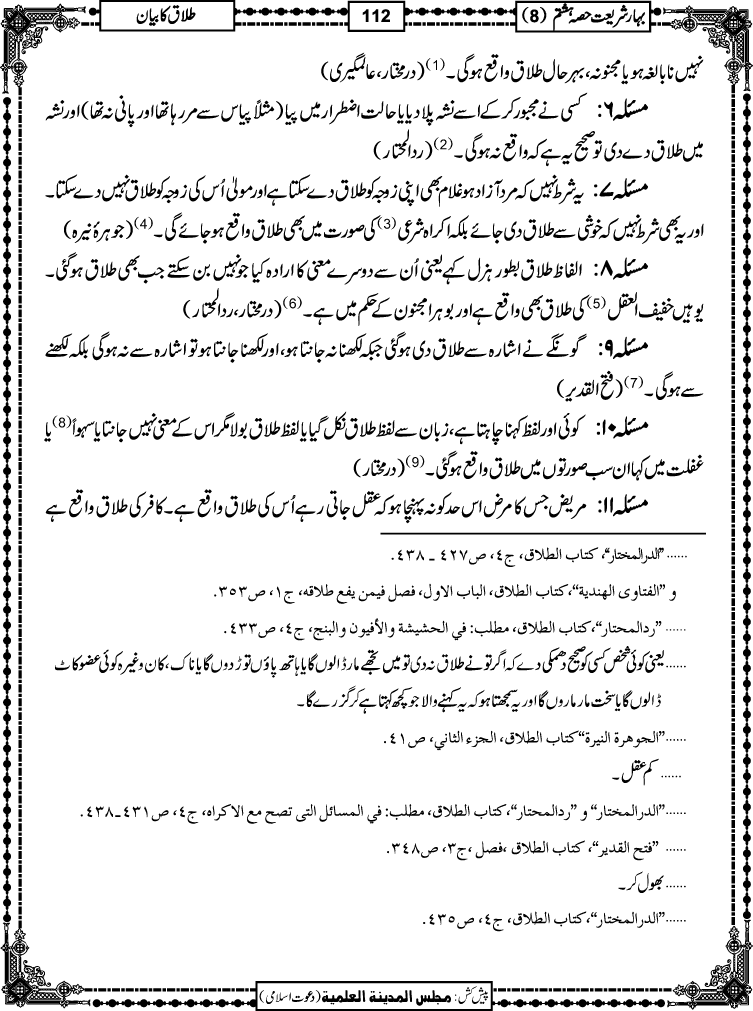 بہارِ شریعت حصہ ہشتم (8)
112
طلاق کا بیان
نہیں نابالغہ ہو یا مجنونہ، بہر حال طلاق واقع ہوگی۔(1) (درمختار، عالمگیری)
مسئلہ ۶: کسی نے مجبور کرکے اسے نشہ پلادیا یا حالت اضطرار میں پیا (مثلاً پیاس سے مر رہا تھا اور پانی نہ تھا) اور نشہ
میں طلاق دے دی تو صحیح یہ ہے کہ واقع نہ ہوگی۔(2) (ردالمحتار)
مسئلہ ۷: یہ شرط نہیں کہ مرد آزاد ہو غلام بھی اپنی زوجہ کو طلاق دے سکتا ہے اور مولیٰ اُس کی زوجہ کو طلاق نہیں دے سکتا۔
اور یہ بھی شرط نہیں کہ خوشی سے طلاق دی جائے بلکہ اکراہ شرعی (3) کی صورت میں بھی طلاق واقع ہو جائے گی۔(4) (جوہرۂ نیرہ)
مسئلہ ۸: الفاظ طلاق بطور ہزل کہے یعنی اُن سے دوسرے معنی کا ارادہ کیا جو نہیں بن سکتے جب بھی طلاق ہوگئی۔
یوہیں خفیف العقل (5) کی طلاق بھی واقع ہے اور بوہرا مجنون کے حکم میں ہے۔(6) (درمختار، ردالمحتار)
مسئلہ ۹: گونگے نے اشارہ سے طلاق دی ہوگئی جبکہ لکھنا نہ جانتا ہو، اور لکھنا جانتا ہو تو اشارہ سے نہ ہوگی بلکہ لکھنے
سے ہوگی۔(7) (فتح القدیر)
مسئلہ ۱۰: کوئی اور لفظ کہنا چاہتا ہے، زبان سے لفظ طلاق نکل گیا یا لفظ طلاق بولا مگر اس کے معنی نہیں جانتا یا سہواً (8) یا
غفلت میں کہا ان سب صورتوں میں طلاق واقع ہوگئی۔(9) (درمختار)
مسئلہ ۱۱: مریض جس کا مرض اس حد کو نہ پہنچا ہو کہ عقل جاتی رہے اُس کی طلاق واقع ہے۔ کافر کی طلاق واقع ہے
......”الدرالمختار“، كتاب الطلاق، ج٤، ص٤٢٧ ـ ٤٣٨.
و ”الفتاوى الهندية“،كتاب الطلاق، الباب الاول، فصل فيمن يقع طلاقه، ج١، ص٣٥٣.
......”ردالمحتار“،كتاب الطلاق، مطلب: في الحشيشة والأفيون والبنج، ج٤، ص٤٣٣.
......یعنی کوئی شخص کسی کو صحیح دھمکی دے کہ اگر تو نے طلاق نہ دی تو میں تجھے مار ڈالوں گا یا ہاتھ پاؤں توڑ دوں گا یا ناک، کان وغیرہ کوئی عضو کاٹ
ڈالوں گا یا سخت مار ماروں گا اور یہ سمجھتا ہو کہ یہ کہنے والا جو کچھ کہتا ہے کر گزرے گا۔
......”الجوهرة النيرة“كتاب الطلاق، الجزء الثاني، ص٤١.
...... کم عقل۔
......”الدرالمختار“ و ”ردالمحتار“،كتاب الطلاق، مطلب: في المسائل التى تصح مع الاكراه، ج٤، ص٤٣١ـ٤٣٨.
...... ”فتح القدير“، كتاب الطلاق ،فصل ،ج٣، ص٣٤٨.
...... بھول کر۔
......”الدرالمختار“،كتاب الطلاق، ج٤، ص٤٣٥.
پیش کش: مجلس المدينة العلمية (دعوت اسلامی)